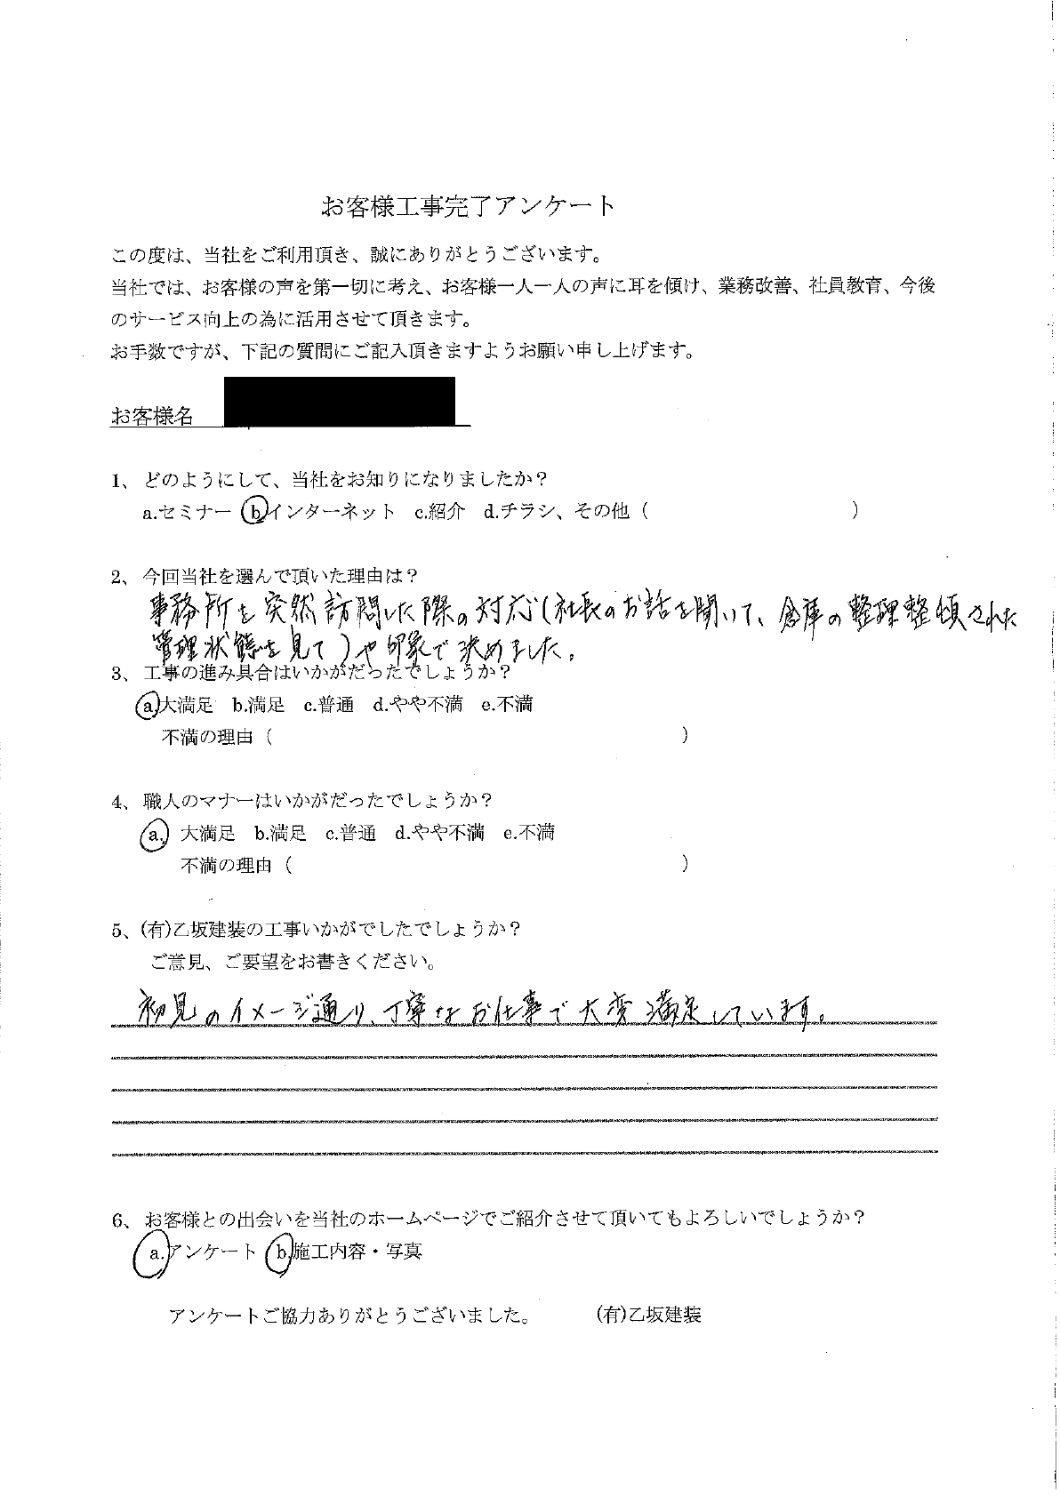 お客様工事完了アンケート
この度は、当社をご利用頂き、誠にありがとうございます。
当社では、お客様の声を第一切に考え、お客様一人一人の声に耳を傾け、業務改善、社員教育、今後
のサービス向上の為に活用させて頂きます。
お手数ですが、下記の質問にご記入頂きますようお願い申し上げます。
お客様名
1、どのようにして、当社をお知りになりましたか？
a.セミナー b.インターネット c.紹介 d.チラシ、その他（ ）
2、今回当社を選んで頂いた理由は？
事務所を突然訪問した際の対応（社長のお話を聞いて、倉庫の整理整頓された
管理状態を見て）や印象で決めました。
3、工事の進み具合はいかがだったでしょうか？
a.大満足 b.満足 c.普通 d.やや不満 e.不満
不満の理由（ ）
4、職人のマナーはいかがだったでしょうか？
a. 大満足 b.満足 c.普通 d.やや不満 e.不満
不満の理由（ ）
5、(有)乙坂建装の工事いかがでしたでしょうか？
ご意見、ご要望をお書きください。
初見のイメージ通り、丁寧なお仕事で大変満足しています。
6、お客様との出会いを当社のホームページでご紹介させて頂いてもよろしいでしょうか？
a.アンケート b.施工内容・写真
アンケートご協力ありがとうございました。 (有)乙坂建装